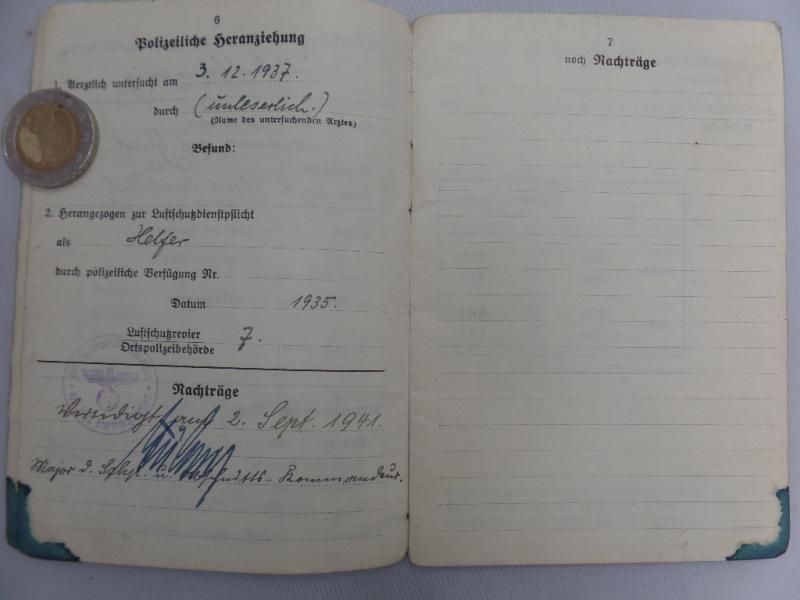 6
Polizeiliche Heranziehung
1. Aerztlich untersucht am 3. 12. 1937.
durch (unleserlich.)
(Name des untersuchenden Arztes)
Befund:
2. Herangezogen zur Luftschutzdienstpflicht
als Helfer
durch polizeiliche Verfügung Nr.
Datum 1935.
Luftschutzrevier
Ortspolizeibehörde 7.
Nachträge
Vereidigt am 2. Sept. 1941.
Major d. Schp. u. Abschnitts-Kommandeur.
7
noch Nachträge